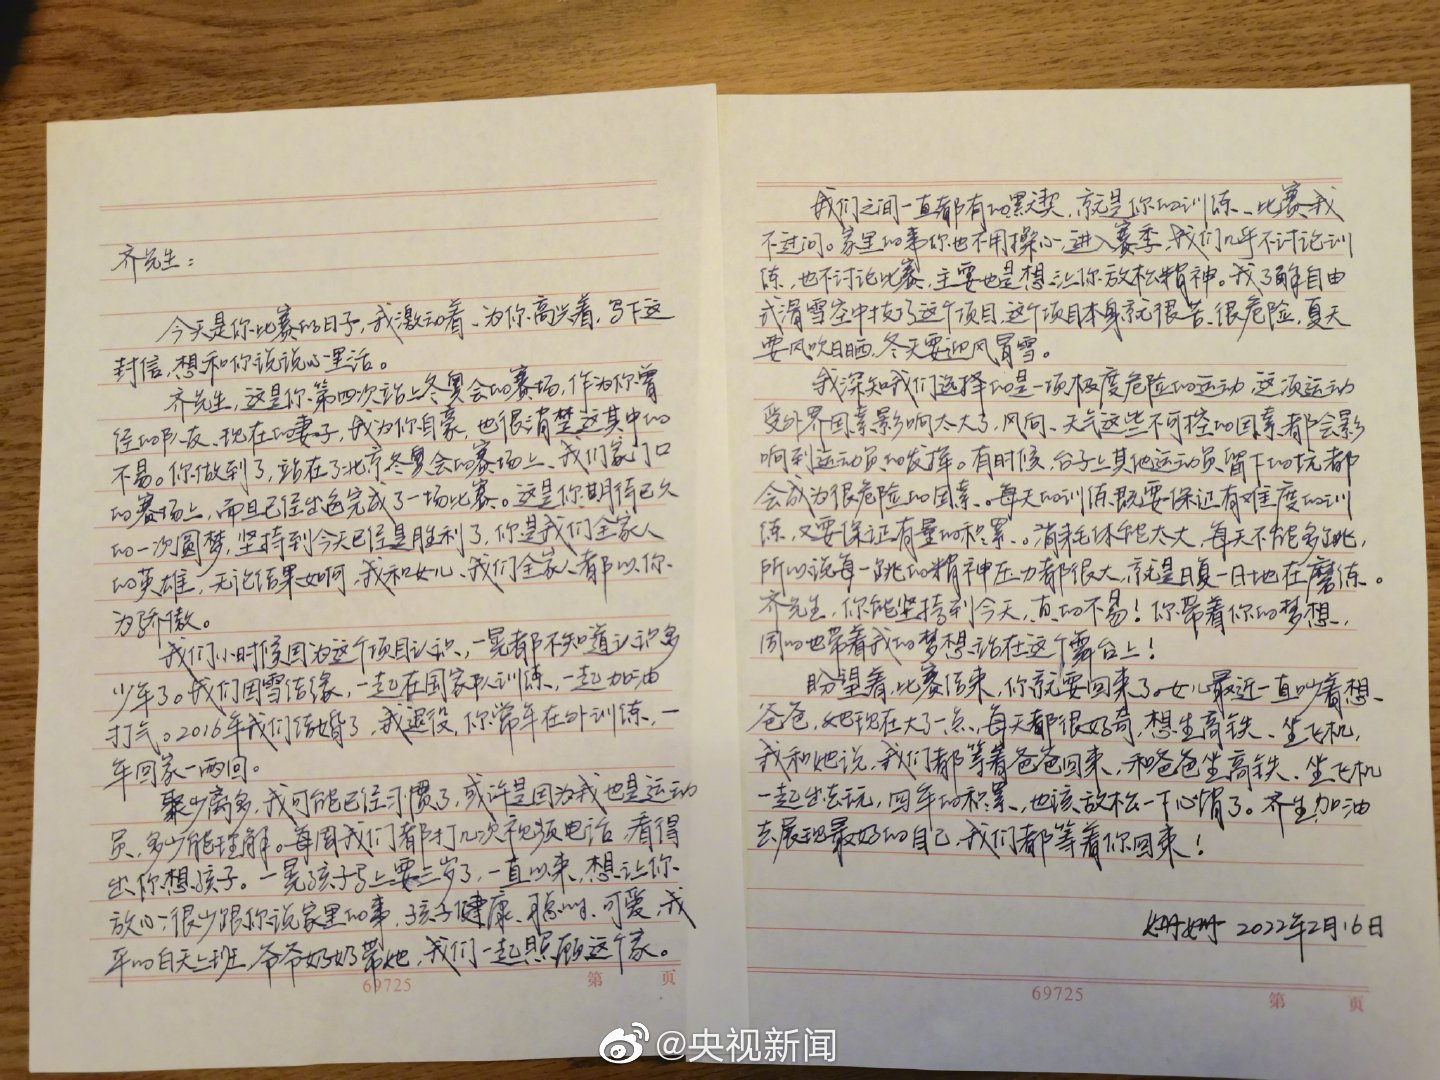 齐先生：
今天是你比赛的日子，我激动着、为你高兴着，写下这
封信，想和你说说心里话。
齐先生，这是你第四次站上冬奥会的赛场，作为你曾
经的队友、现在的妻子，我为你自豪，也很清楚这其中的
不易。你做到了，站在了北京冬奥会的赛场上、我们家门口
的赛场上，而且已经出色完成了一场比赛。这是你期待已久
的一次圆梦，坚持到今天已经是胜利了，你是我们全家人
的英雄，无论结果如何，我和女儿、我们全家人都以你
为骄傲。
我们小时候因为这个项目认识，一晃都不知道认识多
少年了。我们因雪结缘，一起在国家队训练，一起加油
打气。2016年我们结婚了，我退役，你常年在外训练，一
年回家一两回。
聚少离多，我可能已经习惯了，或许是因为我也是运动
员，多少能理解。每周我们都打几次视频电话，看得
出你想孩子。一晃孩子马上要三岁了，一直以来，想让你
放心，很少跟你说家里的事，孩子健康、聪明、可爱，我
平时白天上班，爷爷奶奶带她，我们一起照顾这个家。
69725 第 页
我们之间一直都有的默契，就是你的训练、比赛我
不过问。家里的事你也不用操心，进入赛季，我们几乎不讨论训
练，也不讨论比赛，主要也是想让你放松精神。我了解自由
式滑雪空中技巧这个项目，这个项目本身就很苦、很危险，夏天
要风吹日晒，冬天要迎风冒雪。
我深知我们选择的是一项极度危险的运动，这项运动
受外界因素影响太大了，风向、天气这些不可控的因素都会影
响到运动员的发挥。有时候，台子上其他运动员留下的坑都
会成为很危险的因素。每天的训练既要保证有难度的训
练，又要保证有量的积累。消耗体能太大，每天不能多跳，
所以说每一跳的精神压力都很大，就是日复一日地在磨练。
齐先生，你能坚持到今天，真的不易！你带着你的梦想，
同时也带着我的梦想站在这个舞台上！
盼望着，比赛结束，你就要回来了。女儿最近一直吵着想
爸爸，她现在大了一点，每天都很好奇，想坐高铁、坐飞机，
我和她说，我们都等着爸爸回来，和爸爸坐高铁、坐飞机
一起出去玩，四年的积累，也该放松一下心情了。齐先生加油
去展现最好的自己，我们都等着你回来！
姗姗 2022年2月16日
69725 第 页
@央视新闻